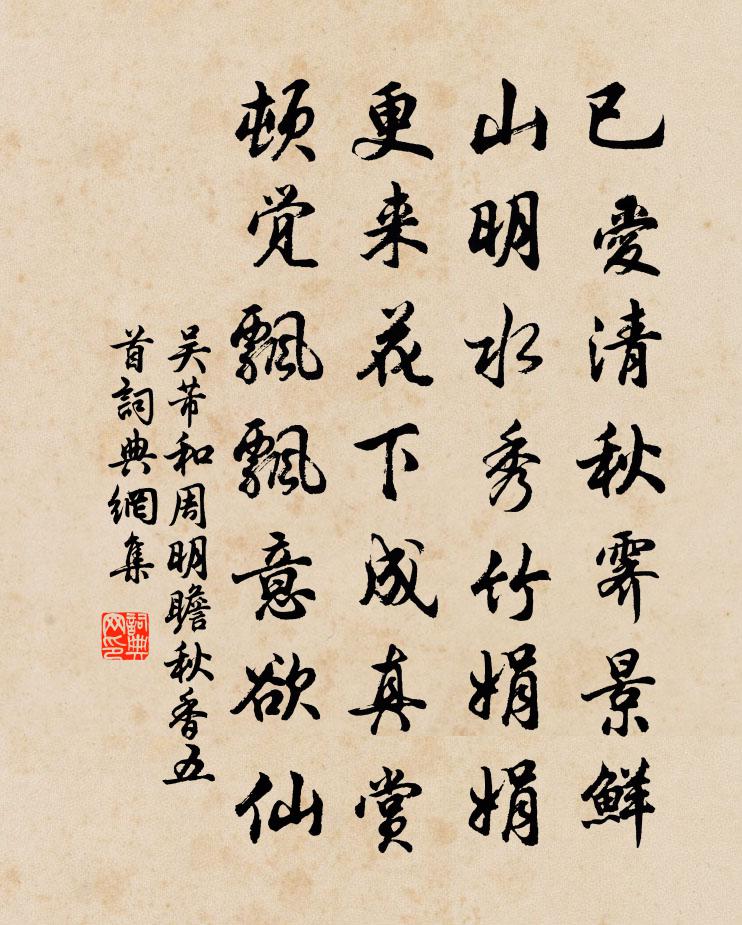 已愛清秋霽景鮮
山明水秀竹娟娟
更来花下成真赏
頓觉飄飄意欲仙
吴芾和周明瞻秋香五
首詞典網集
詞典
网印